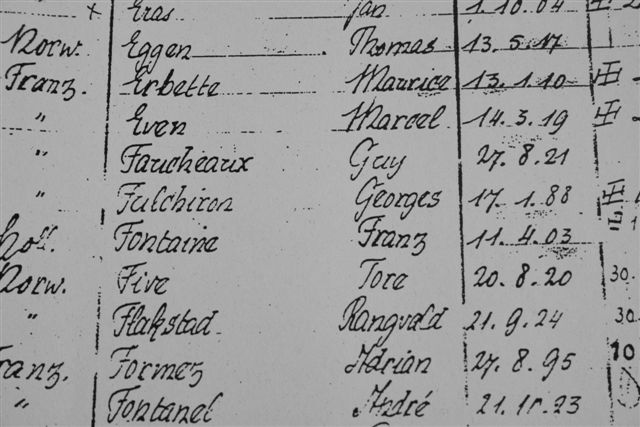 x Eras Jan 1.10.04 III
Norw. Eggen Thomas 13.5.17
Franz. Erbette Maurice 13.1.10 III
" Even Marcel 14.3.19 III
" Faucheaux Guy 27.8.21
" Fulchiron Georges 17.1.88 III
Holl. Fontaine Franz 11.4.03
Norw. Five Tore 20.8.20 30.
" Flakstad Rangvald 21.9.24 30.
Franz. Formez Adrian 27.8.95 10
" Fontanel André 21.11.23